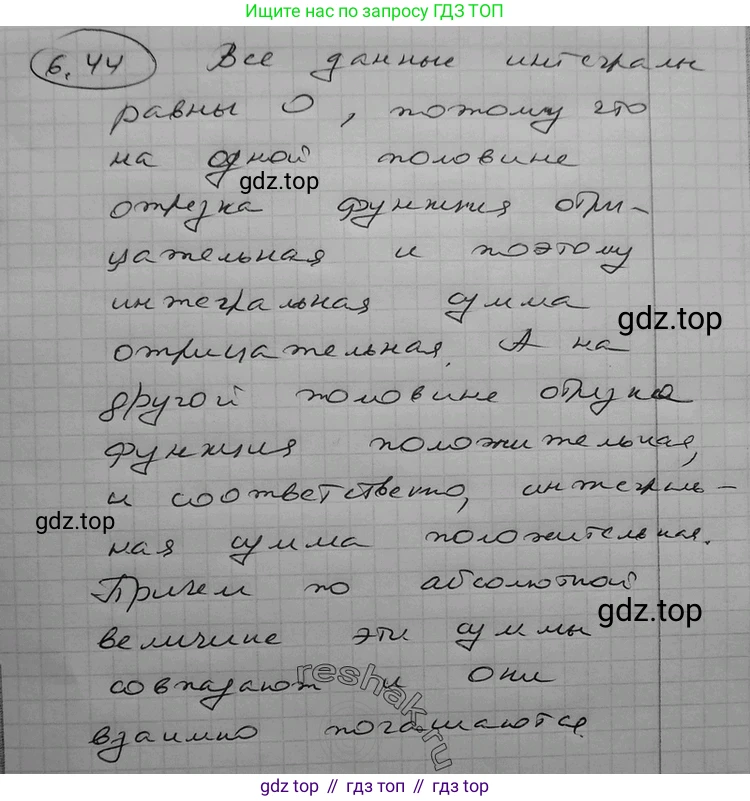 Ищите нас по запросу ГДЗ ТОП
6.44 Все данные интегралы
равны 0, потому что
на одной половине
gdz.top
отрезка функция отри-
цательная и поэтому
интегральная сумма
gdz.top
отрицательная. А на
другой половине отрезка
функция положительная,
и соответствено, интеграль-
gdz.top
ная сумма положительная.
Причем по абсолютной
gdz.top
величине эти суммы
совпадают и они
reshak.ru
взаимно погашаются.
gdz top // гдз топ // gdz top